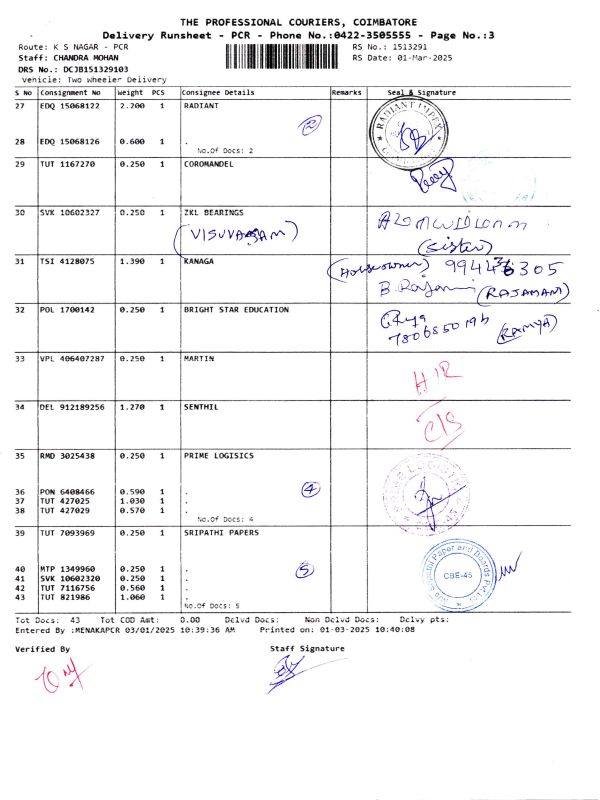 THE PROFESSIONAL COURIERS, COIMBATORE
Delivery Runsheet - PCR - Phone No.:0422-3505555 - Page No.:3
Route: K S NAGAR - PCR RS No.: 1513291
Staff: CHANDRA MOHAN RS Date: 01-Mar-2025
DRS No.: DCJB151329103
Vehicle: Two Wheeler Delivery
S No Consignment No Weight PCS Consignee Details Remarks Seal & Signature
27 EDQ 15068122 2.200 1 RADIANT
RADIANT IMPEX
2
28 EDQ 15068126 0.600 1 .
No.Of Docs: 2
29 TUT 1167270 0.250 1 COROMANDEL
30 SVK 10602327 0.250 1 ZKL BEARINGS
(VISUVASAM)
(Sister)
31 TSI 4128075 1.390 1 KANAGA (Houseowner)
B. Rajami (RAJAMANI)
32 POL 1700142 0.250 1 BRIGHT STAR EDUCATION
(RAMYA)
33 VPL 406407287 0.250 1 MARTIN
34 DEL 912189256 1.270 1 SENTHIL
C/S
35 RMD 3025438 0.250 1 PRIME LOGISICS
36 PON 6408466 0.590 1 . 4
37 TUT 427025 1.030 1 .
38 TUT 427029 0.570 1 .
No.Of Docs: 4
39 TUT 7093969 0.250 1 SRIPATHI PAPERS
Sripathi Paper and Boards Pvt Ltd
CBE-45
40 MTP 1349960 0.250 1 . 5
41 SVK 10602320 0.250 1 .
42 TUT 7116756 0.560 1 .
43 TUT 821986 1.060 1 .
No.Of Docs: 5
Tot Docs: 43 Tot COD Amt: 0.00 Delvd Docs: Non Delvd Docs: Delvy pts:
Entered By :MENAKAPCR 03/01/2025 10:39:36 AM Printed on: 01-03-2025 10:40:08
Verified By Staff Signature